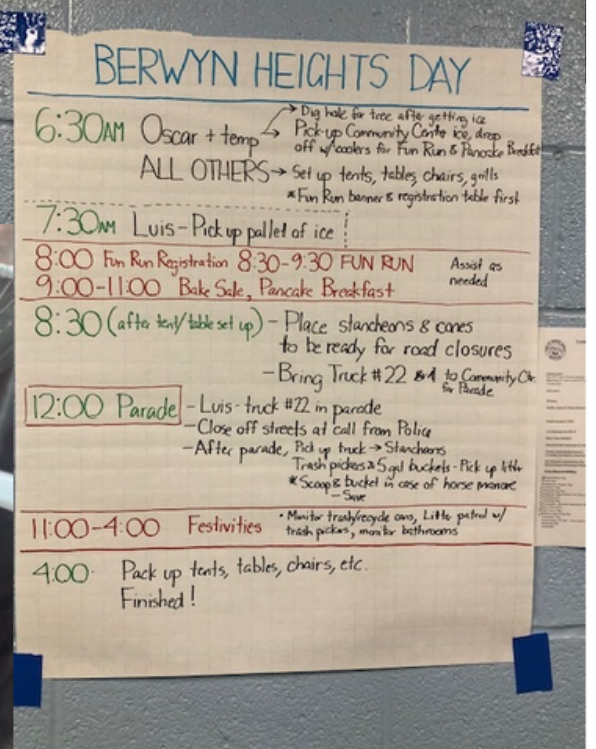 BERWYN HEIGHTS DAY
6:30AM Oscar + temp → Dig hole for tree after getting ice
→ Pick up Community Center ice, drop
off w/coolers for Fun Run & Pancake Breakfast
ALL OTHERS → Set up tents, tables, chairs, grills
* Fun Run banner & registration table first
7:30AM Luis - Pick up pallet of ice
8:00 Fun Run Registration 8:30-9:30 FUN RUN Assist as
9:00-11:00 Bake Sale, Pancake Breakfast needed
8:30 (after tent/table set up) - Place stancheons & cones
to be ready for road closures
- Bring Truck #22 to Community Ctr.
for Parade
12:00 Parade - Luis - truck #22 in parade
- Close off streets at call from Police
- After parade, Pick up truck → Stancheons
Trash pickers & 5 gal buckets - Pick up litter
* Scoop & bucket in case of horse manure
11:00-4:00 Festivities • Monitor trash/recycle cans, Litter patrol w/
trash pickers, monitor bathrooms
4:00 Pack up tents, tables, chairs, etc.
Finished!